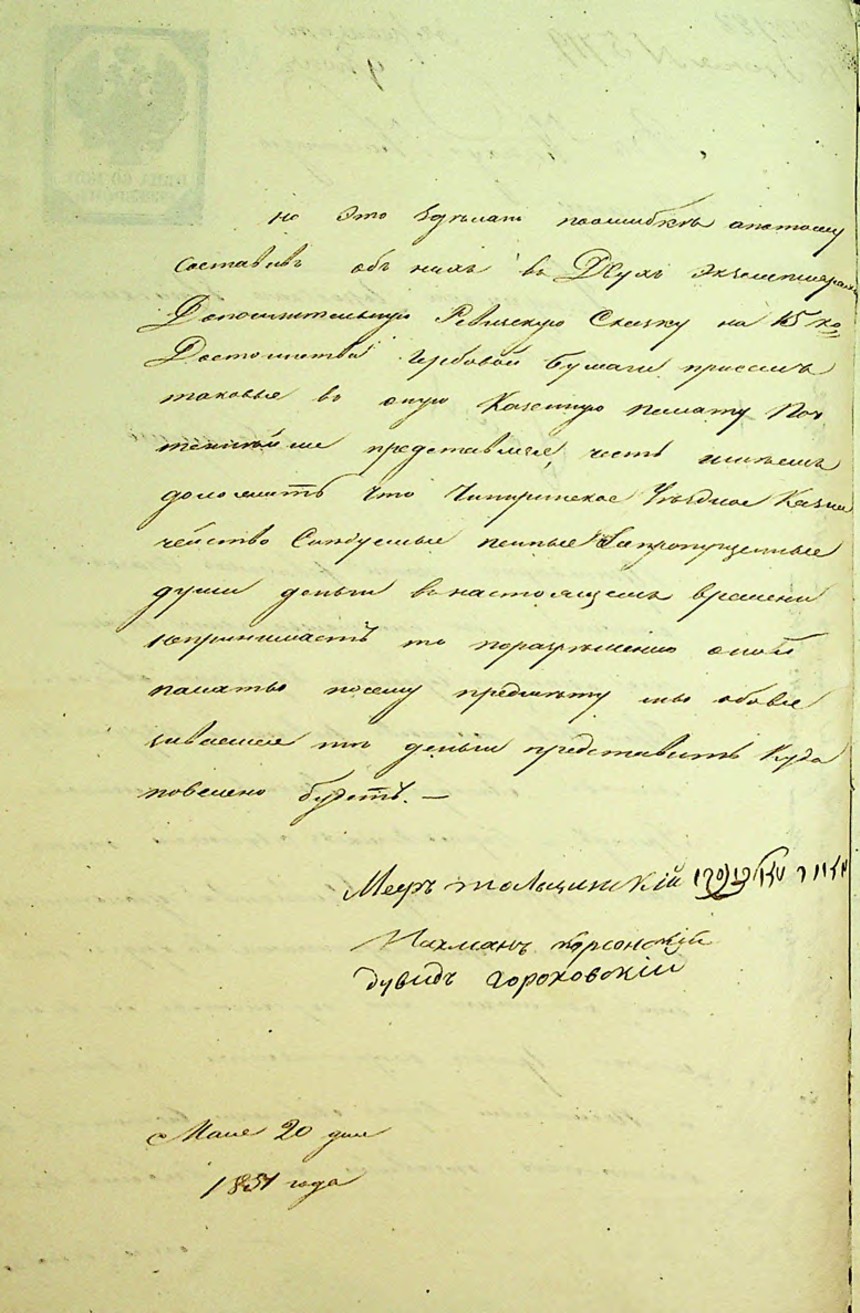 но это зделали поошибкѣ апотому
составивъ объ нихъ въ Двухъ экземплярахъ
Дополнительную Ревизскую Сказку на 15 ко
Достоинства гербовой бумаги присемъ
таковые въ оную Казенную палату Поч
теннѣйше представляя, честь имѣемъ
доложить что Чигиринское Уѣздное Казна
чейство Слѣдуемые пенные Запропущенные
души деньги внастоящемъ времени
непринимаетъ то поразрѣшению оной
палатою посему предмѣту мы обовя
зиваемся тѣ деньги представить куда
повелено будетъ. —
Мееръ Наxманъ Херсонский
Дувидъ Гороховский
Мая 20 дня
1851 года